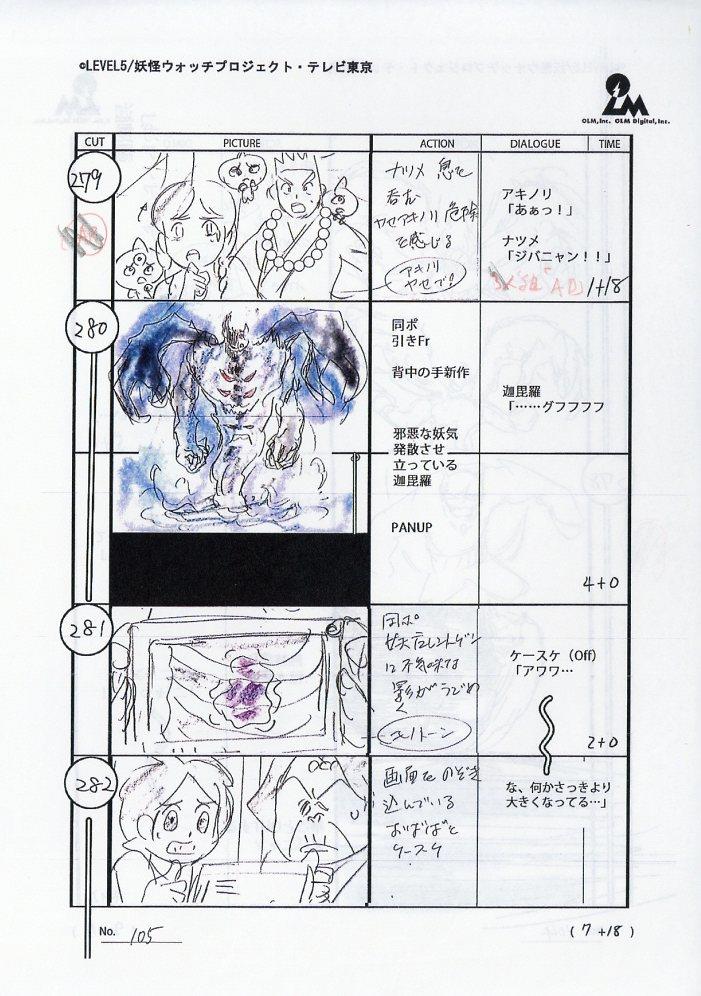 ©LEVEL5/妖怪ウォッチプロジェクト・テレビ東京
OLM
OLM, Inc. OLM Digital, Inc.
CUT PICTURE ACTION DIALOGUE TIME
279
ナツメ 息を
呑む
ヤセアキノリ 危険
を感じる
アキノリ
ヤセで!
アキノリ
「あぁっ!」
ナツメ
「ジバニャン!!」
1+18
280
同ポ
引きFr
背中の手新作
邪悪な妖気
発散させ
立っている
迦毘羅
PANUP
迦毘羅
「……グフフフフ
4+0
281
同ポ
妖方レントゲン
に不気味な
影がうごめ
く
モノトーン
ケースケ(Off)
「アワワ…
2+0
282
画面をのぞき
込んでいる
おばばと
ケースケ
な、何かさっきより
大きくなってる…」
No. 105
(7+18)